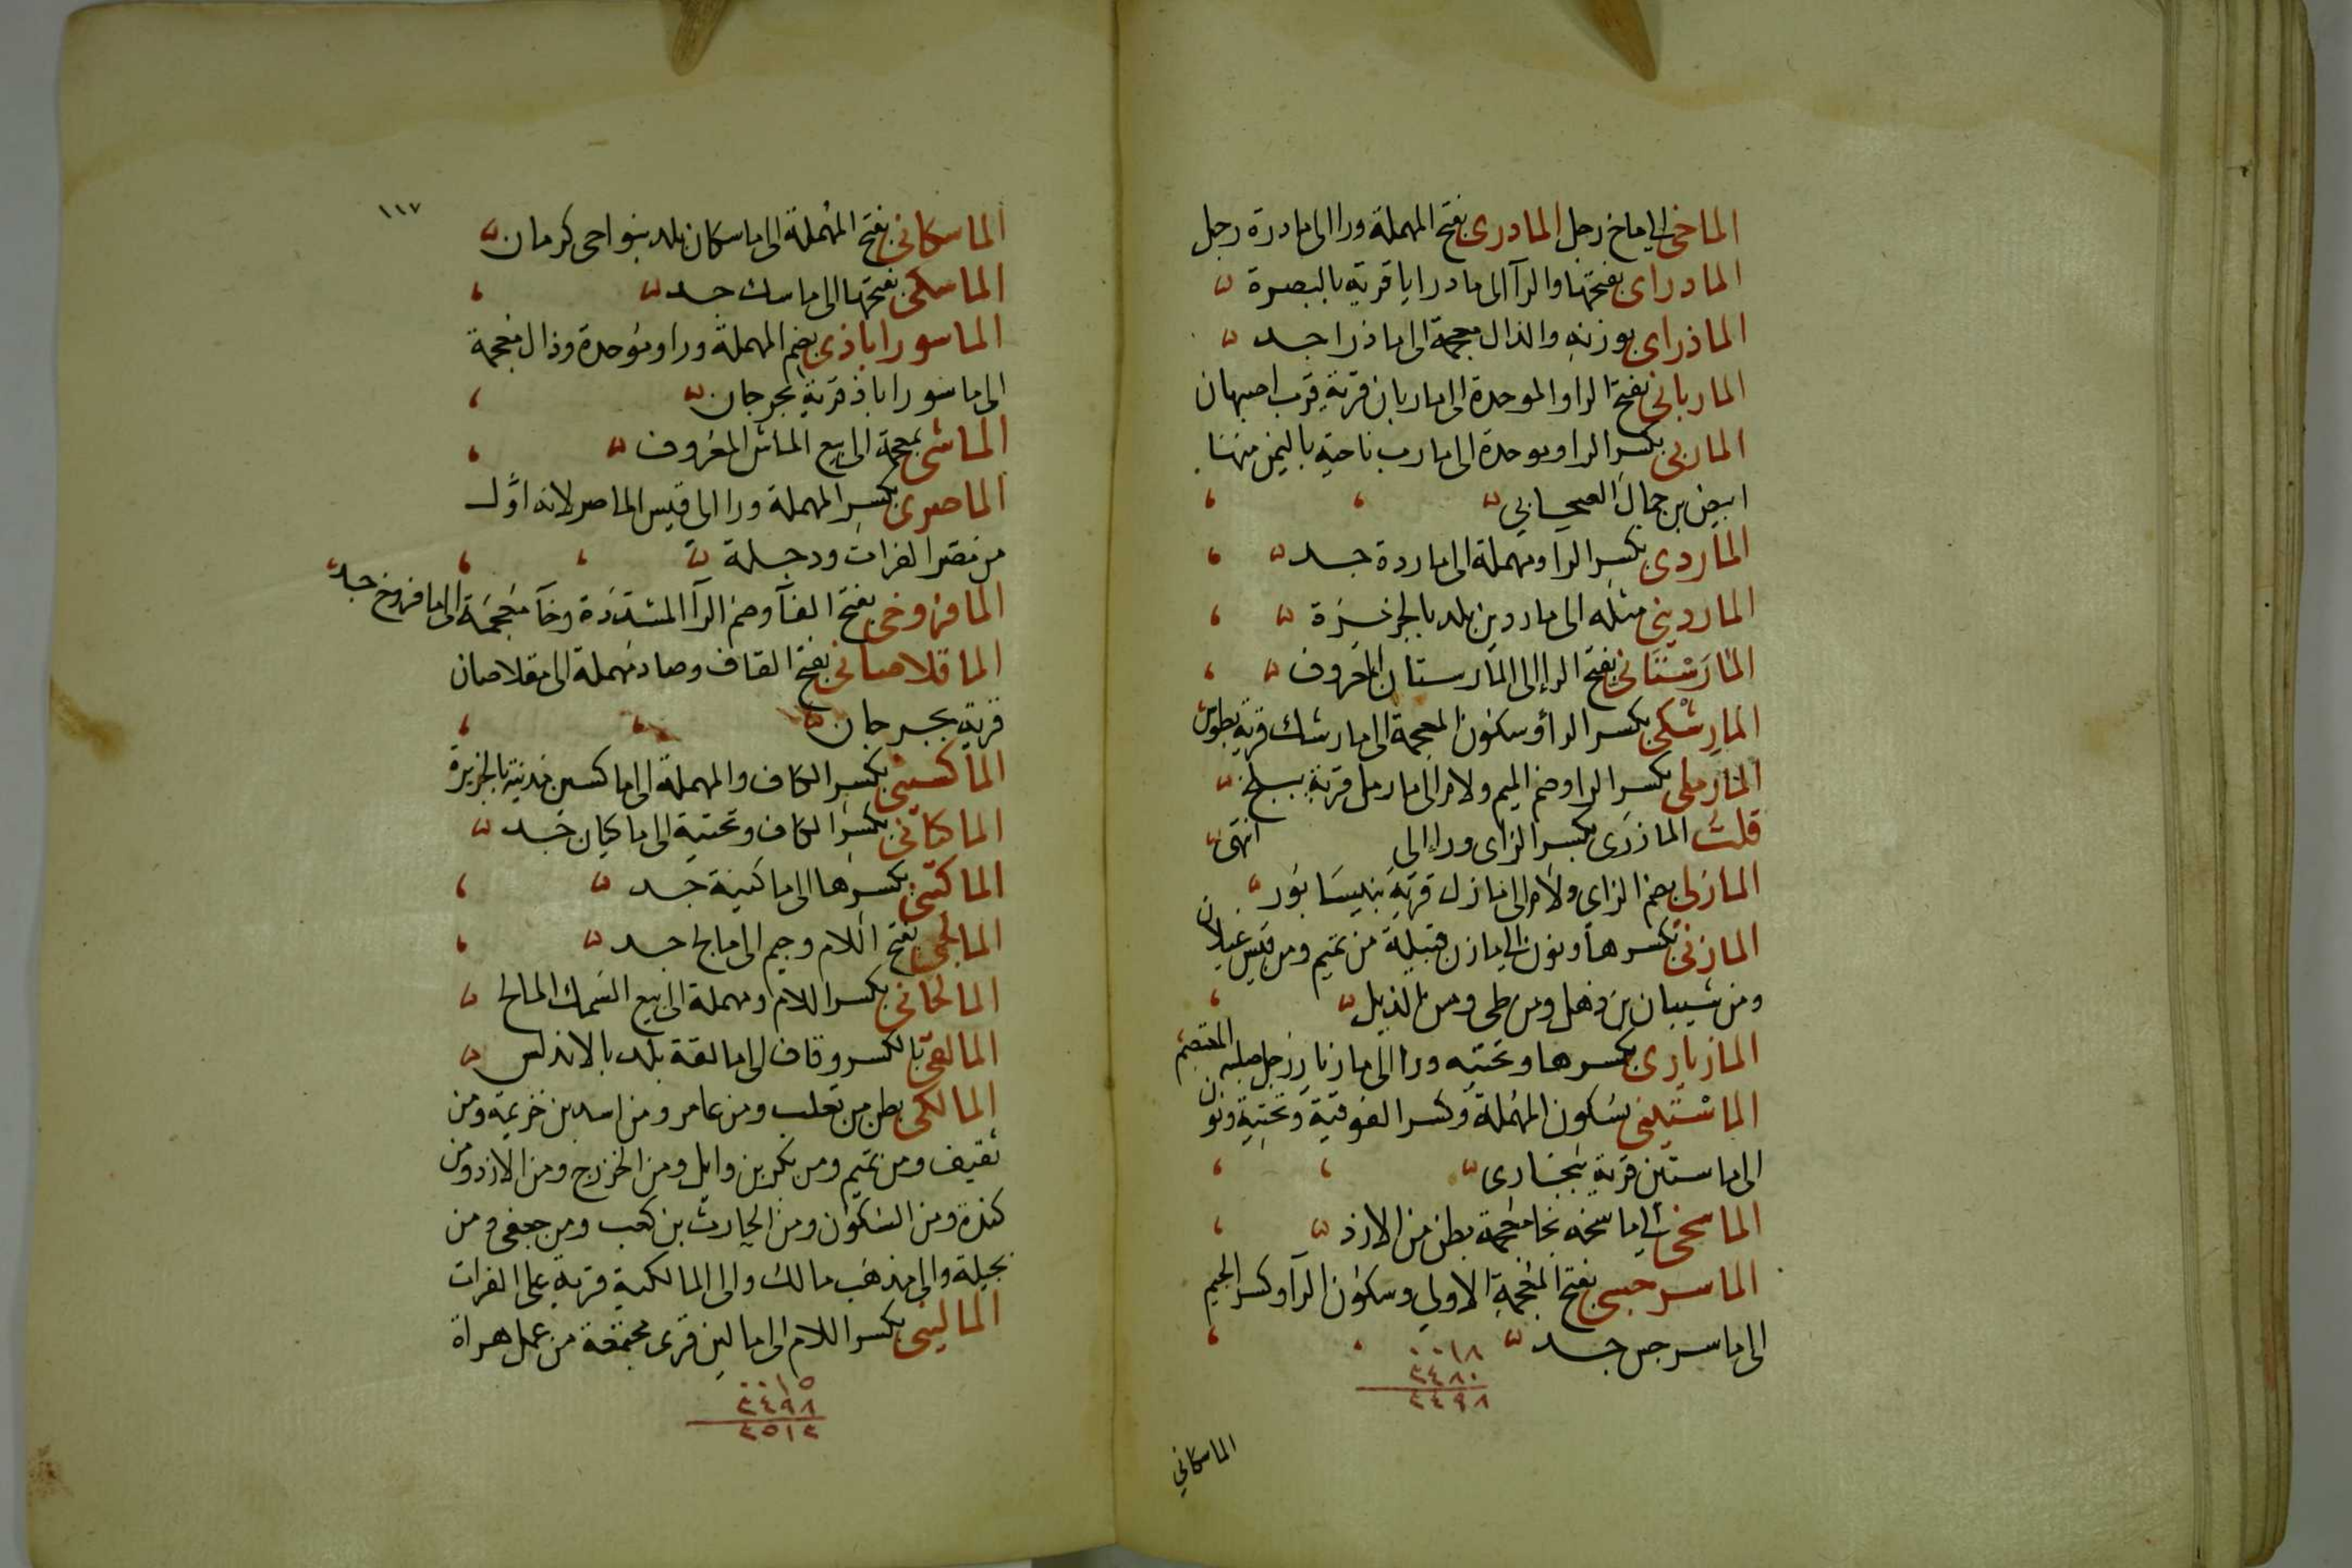 الماخى الى ماخ رجل المادرى بفتح المهملة ورا الى مادرة رجل
المادراى بفتحتها والرآ الى مادرايا قرية بالبصرة
الماذراى بوزنه والذال معجمة الى ماذرا جد
المارباني بفتح الرا والموحدة الى ماربان قرية قرب اصبهان
الماربى بكسر الرا وموحدة الى مارب ناحية باليمن منها
ابيض بن حمال الصحابي
الماردى بكسر الرا ومهملة الى ماردة جد
الماردينى مثله الى ماردين بلد بالجزيرة
المارَسْتَانى بفتح الرا الى المارستان المعروف
المارِشْكى بكسر الرا وسكون المعجمة الى مارشك قرية بطوس
المارملى بكسر الرا وضم الميم ولام الى مارمل قرية ببلخ
قلت المازرى بكسر الزاى ورا الى انتهى
المازلى بضم الزاى ولام الى مازل قرية بنيسابور
المازنى بكسرها ونون الى مازن قبيلة من تميم ومن قيس عيلان
ومن شيبان بن ذهل ومن طى ومن
المازيارى بكسرها وتحتيه ورا الى مازيار رجل صلبه المعتصم
الماستينى بسكون المهملة وكسر الفوقية وتحتية ونون
الى ماستين قرية ببخارى
الماسخى الى ماسخه بخا معجمة بطن من الازد
الماسرجسى بفتح المعجمة الاولي وسكون الرآ وكسر الجيم
الى ماسرجس جد
٠٠١٨
٢٤٨٠
٢٤٩٨
الماسكاني
١١٧
الماسكانى بفتح المهملة الى ماسكان بلد بنواحى كرمان
الماسكى بفتحها الى ماسك جد
الماسوراباذى بضم المهملة ورا وموحدة وذال معجمة
الى ماسوراباذ قرية بجرجان
الماشى بمعجمة الى بيع الماش المعروف
الماصرى بكسر المهملة ورا الى قيس الماصر لانه اول
من مصر الفرات ودجلة
المافروخى بفتح الفآ وضم الرآ المشددة وخآ معجمة الى مافروخ جد
الماقلاصانى بفتح القاف وصاد مهملة الى مقلاصان
قرية بجرجان
الماكسينى بكسر الكاف والمهملة الى ماكسين مدينة بالجزيرة
الماكيانى بكسر الكاف وتحتية الى ماكيان جد
الماكينى بكسرها الى ماكينة جد
المالجى بفتح اللام وجيم الى مالج جد
المالحانى بكسر اللام ومهملة الى بيع السمك المالح
المالقى بالكسر وقاف الى مالقة بلد بالاندلس
المالكى بطن من تغلب ومن عامر ومن اسد بن خزيمة ومن
ثقيف ومن تميم ومن بكر بن وايل ومن الخزرج ومن الازد ومن
كندة ومن السكون ومن الحارث بن كعب ومن جعفى ومن
بجيلة والى مذهب مالك والى المالكية قرية على الفرات
المالينى بكسر اللام الى مالين قرى مجتمعة من عمل هراة
٠٠١٥
٢٤٩٨
٢٥١٣